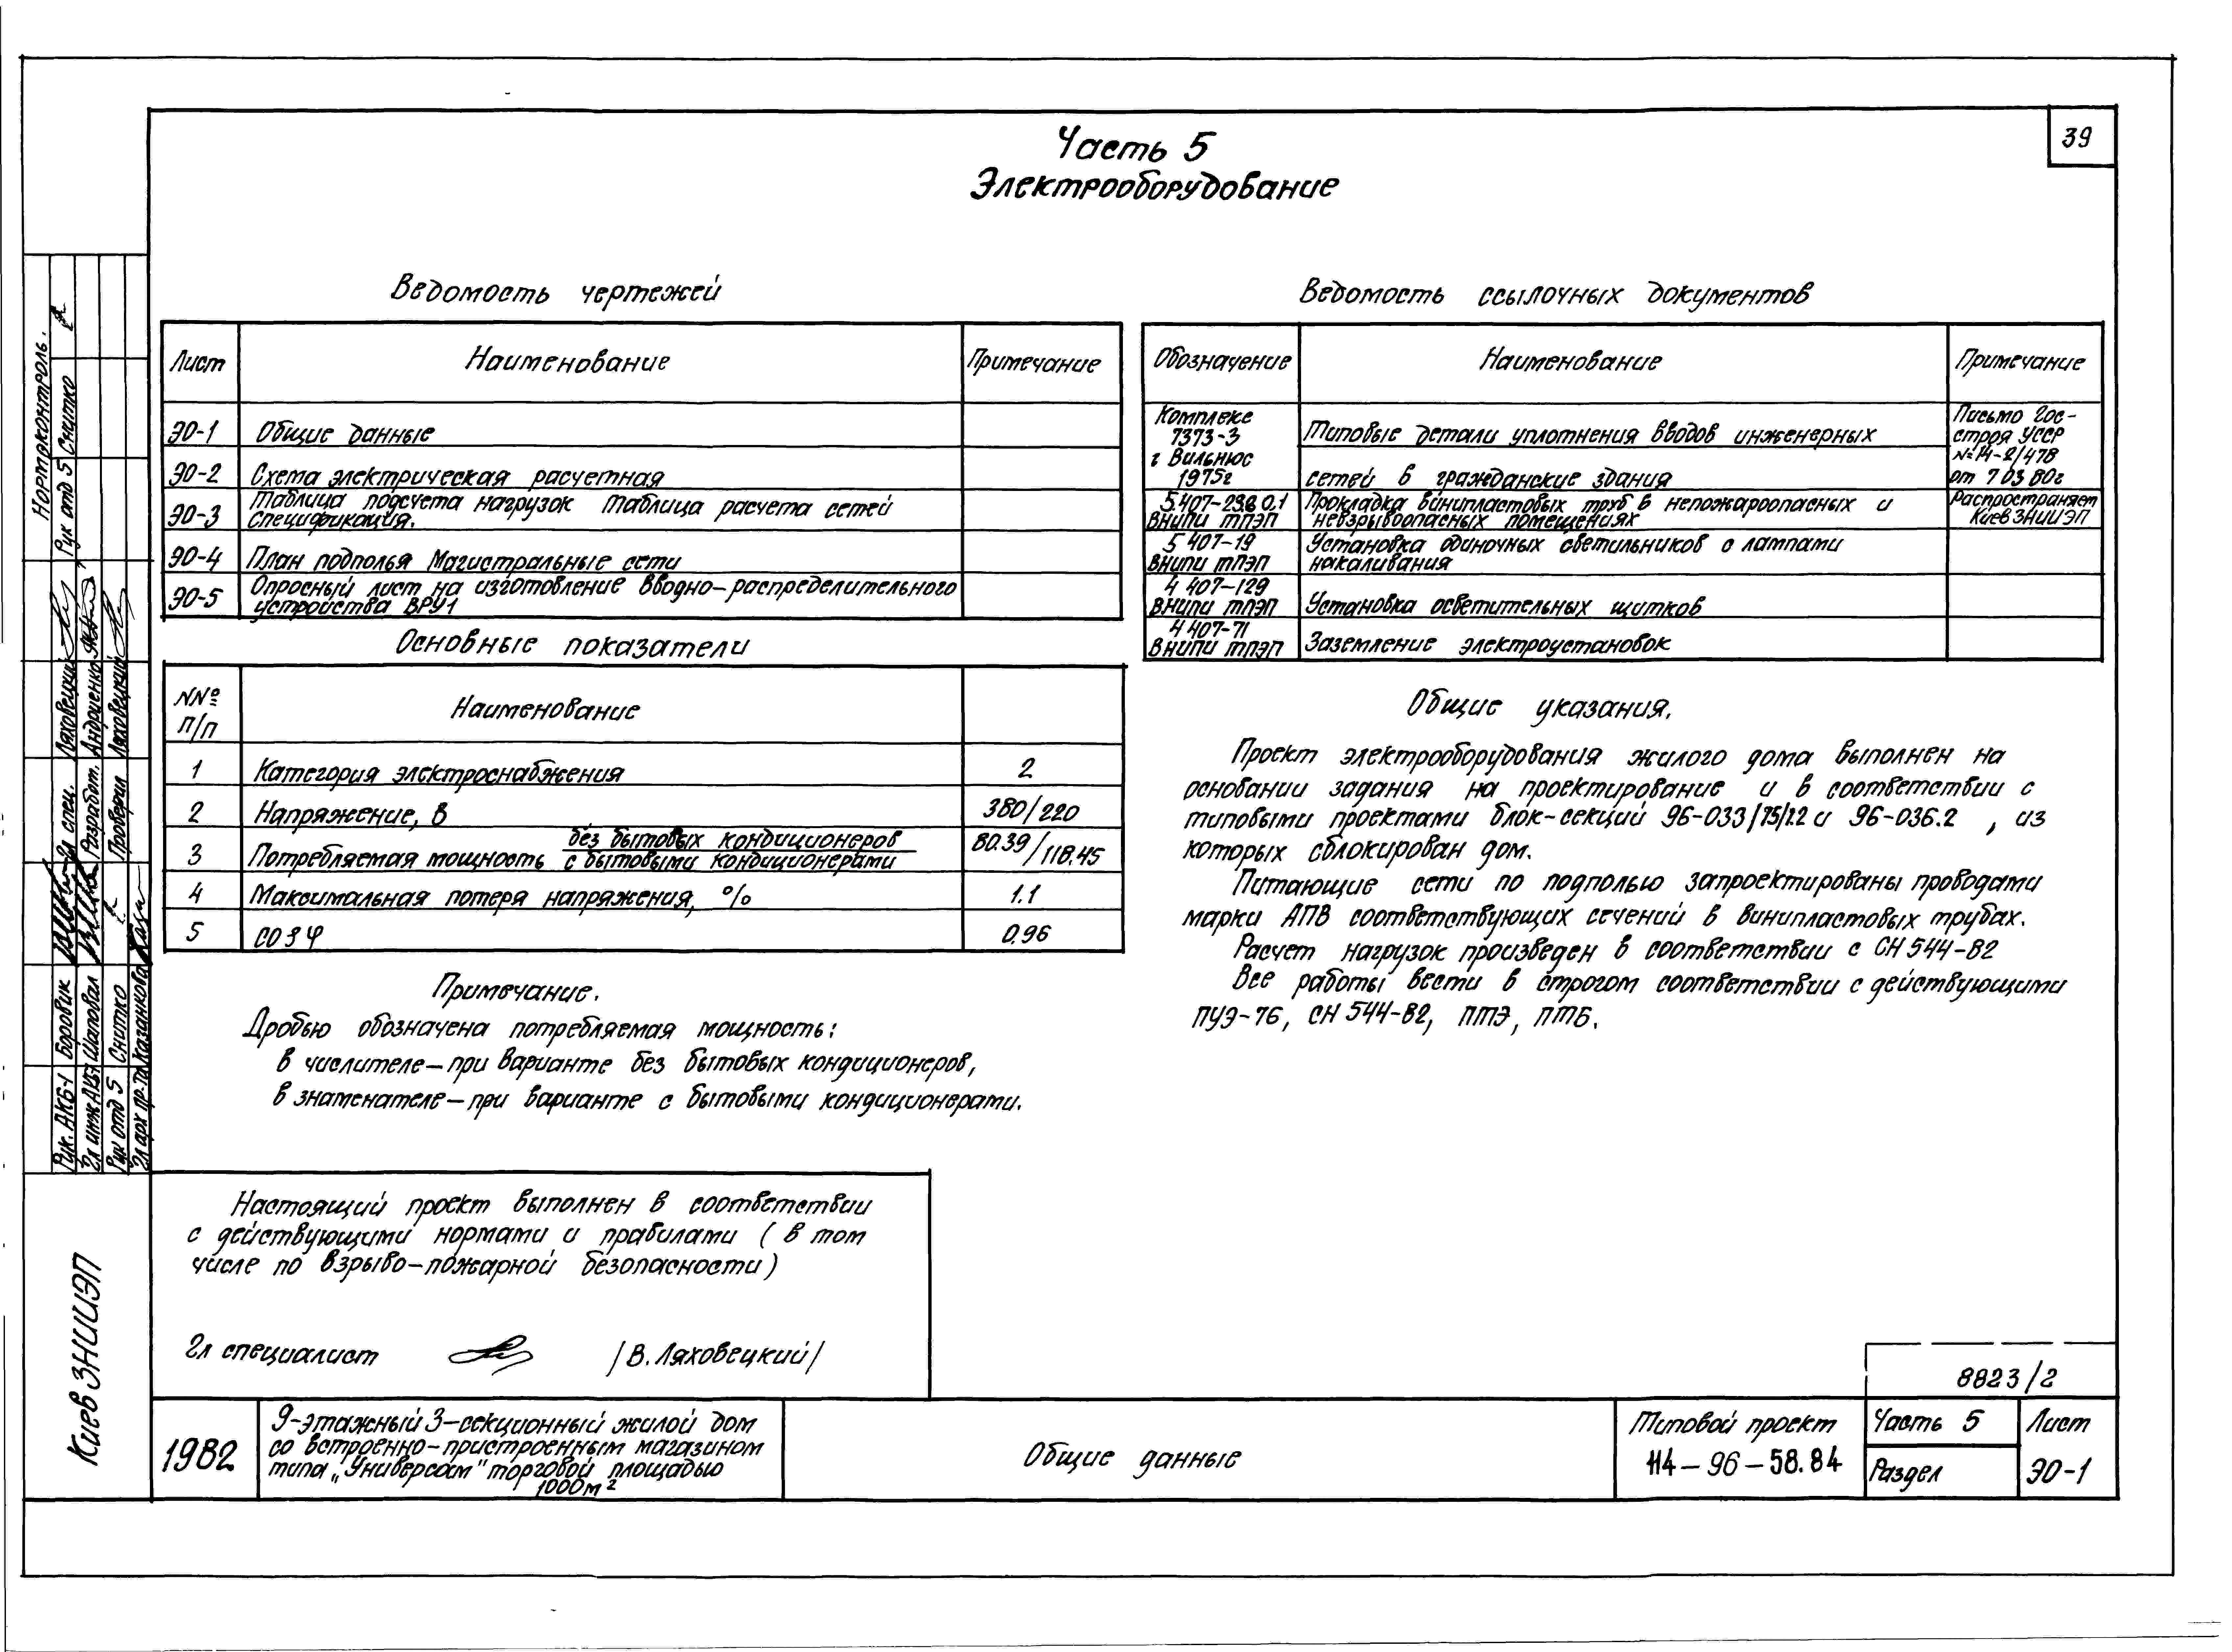 39
Часть 5
Электрооборудование
Ведомость чертежей
Лист Наименование Примечание
ЭО-1 Общие данные
ЭО-2 Схема электрическая расчетная
ЭО-3 Таблица подсчета нагрузок Таблица расчета сетей
Спецификация.
ЭО-4 План подполья Магистральные сети
ЭО-5 Опросный лист на изготовление вводно-распределительного
устройства ВРУ1
Основные показатели
NNº
п/п
Наименование
1 Категория электроснабжения 2
2 Напряжение, В 380/220
3 Потребляемая мощность без бытовых кондиционеров 80.39/118.45
с бытовыми кондиционерами
4 Максимальная потеря напряжения, % 1.1
5 cos φ 0.96
Примечание.
Дробью обозначена потребляемая мощность:
в числителе-при варианте без бытовых кондиционеров,
в знаменателе-при варианте с бытовыми кондиционерами.
Ведомость ссылочных документов
Обозначение Наименование Примечание
Комплекс
7373-3
г Вильнюс
1975г
Типовые детали уплотнения вводов инженерных
сетей в гражданские здания
Письмо Гос-
строя УССР
№14-2/478
от 7 03 80г
ВНИПИ ТПЭП
Прокладка винипластовых труб в непожароопасных и
невзрывоопасных помещениях
Распространяет
Киев ЗНИИЭП
5 407-19
ВНИПИ ТПЭП
Установка одиночных светильников с лампами
накаливания
4 407-129
ВНИПИ ТПЭП
Установка осветительных щитков
4 407-71
ВНИПИ ТПЭП
Заземление электроустановок
Общие указания.
Проект электрооборудования жилого дома выполнен на
основании задания на проектирование и в соответствии с
типовыми проектами блок-секций 96-033/75/1.2 и 96-036.2 , из
которых сблокирован дом.
Питающие сети по подполью запроектированы проводами
марки АПВ соответствующих сечений в винипластовых трубах.
Расчет нагрузок произведен в соответствии с СН 544-82
Все работы вести в строгом соответствии с действующими
ПУЭ-76, СН 544-82, ПТЭ, ПТБ.
Настоящий проект выполнен в соответствии
с действующими нормами и правилами (в том
числе по взрыво-пожарной безопасности)
Гл специалист /В. Ляховецкий/
8823/2
1982
9-этажный 3-секционный жилой дом
со встроенно-пристроенным магазином
типа „Универсам" торговой площадью
1000м²
Общие данные
Типовой проект
114-96-58.84
Часть 5
Раздел
Лист
ЭО-1
Киев ЗНИИЭП
Нормоконтроль.
Рук отд 5 Снитко
Гл спец. Ляховецкий
Разработ. Андриенко
Проверил Ляховецкий
Рук. АКБ-1 Боровик
Гл инж АКБ-1 Шаповал
Рук отд 5 Снитко
Гл арх пр-та Казанкова